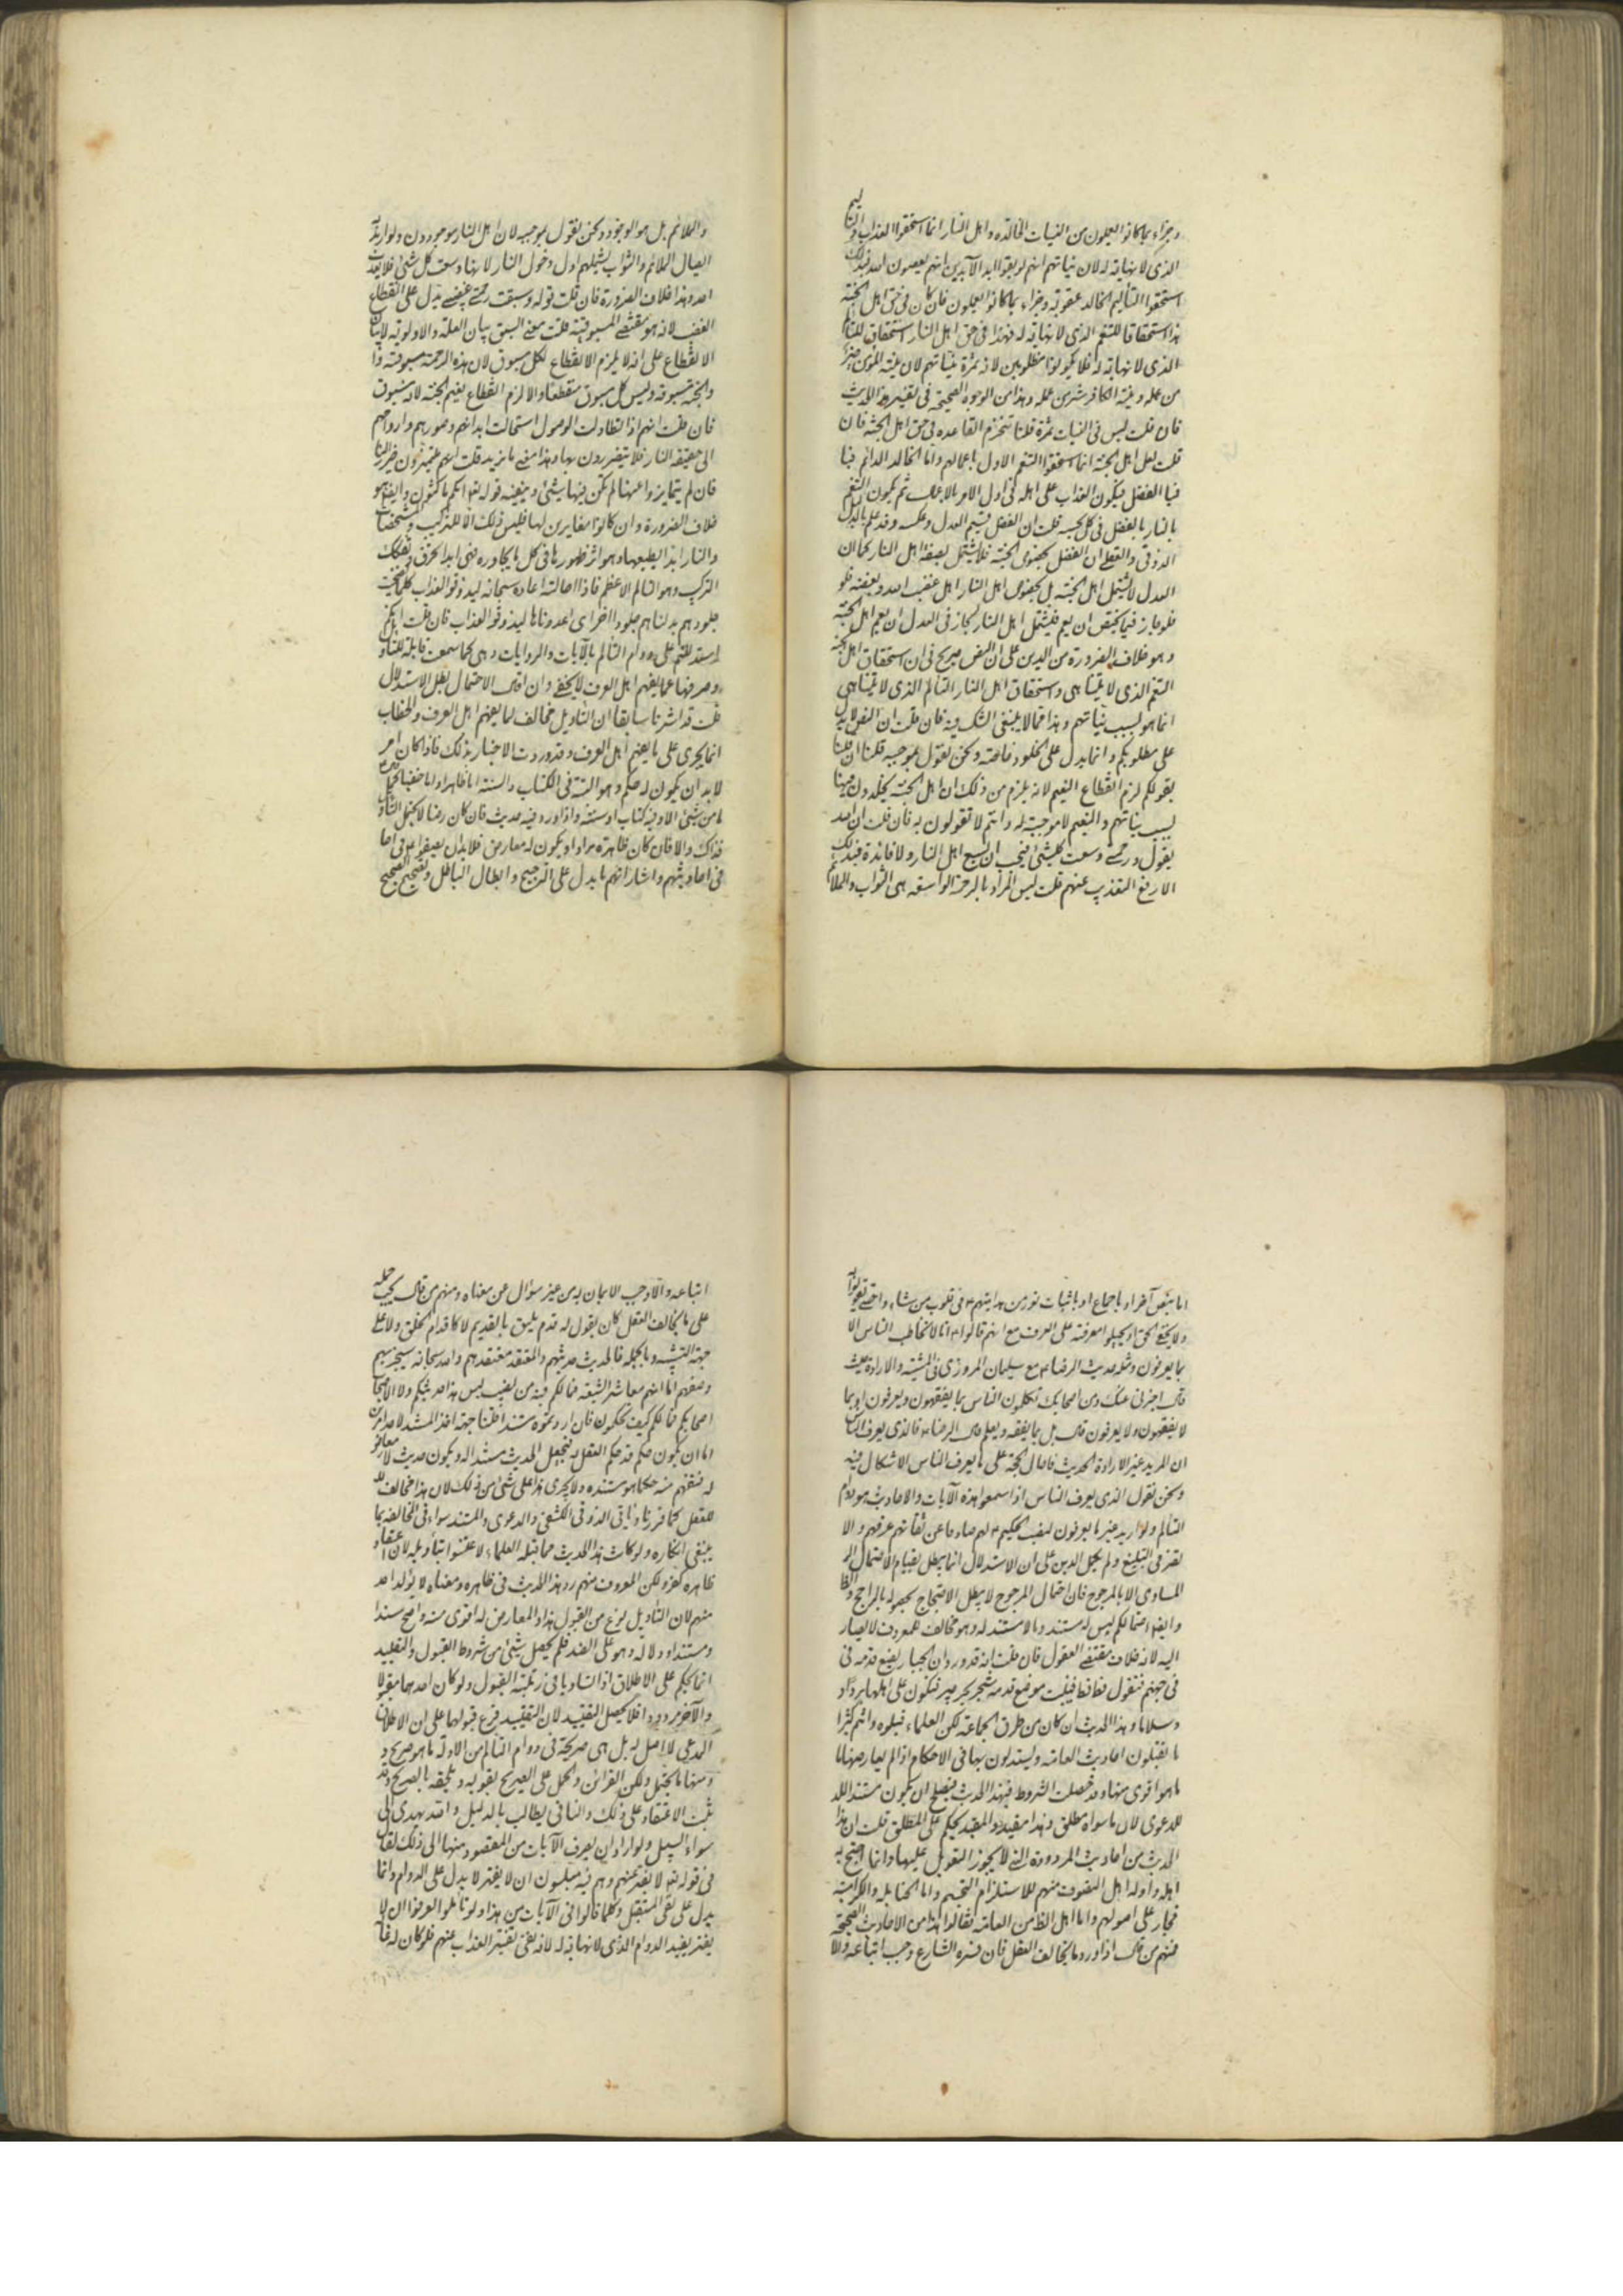 وجزاء بما كانوا يعملون من النيات الخالدة واهل النار انما استحقوا العذاب والتأليم
الذى لا نهاية له لان نياتهم انهم لو بقوا ابد الآبدين انهم يعصون الله فبذلك
استحقوا التأليم الخالد عقوبة وجزاء بما كانوا يعملون فان كان فى حق اهل الجنة
هذا استحقاقا للتنعم الذى لا نهاية له فهذا فى حق اهل النار استحقاق للتألم
الذى لا نهاية له فلا يكونوا مظلومين لانه ثمرة نياتهم لان نية المؤمن خير
من عمله ونية الكافر شر من عمله وهذا من الوجوه الصحيحة فى تفسير هذا الحديث
فان قلت ليس فى النيات ثمرة قلنا تنخرم القاعدة فى حق اهل الجنة فان
قلت لعل اهل الجنة انما استحقوا التنعم الاول باعمالهم واما الخالد الدائم فبا
فبا الفضل فيكون العذاب على اهله فى اول الامر بالاعمال ثم يكون التنعم
بالنار بالفضل فى كل بحسبه قلت ان الفضل قسيم العدل وعكسه وقد علم بالدليل
الذوقى والنقلى ان الفضل يخص الجنة فلا يشتمل بصفة اهل النار كما ان
العدل لا يشتمل اهل الجنة بل يخص اهل النار اهل غضب الله وبغضه فلو
فلو جاز فيما يختص ان يعم فيشتمل اهل النار لجاز فى العدل ان يعم اهل الجنة
وهو خلاف الضرورة من الدين على ان النص صريح فى ان استحقاق اهل الجنة
التنعم الذى لا يتناهى واستحقاق اهل النار التألم الذى لا يتناهى
انما هو بسبب نياتهم وهذا مما لا ينبغى الشك فيه فان قلت ان النص لا يدل
على مطلوبكم وانما يدل على الخلود خاصة ونحن نقول بموجبه قلنا ان قلنا
بقولكم لزم انقطاع النعيم لانه يلزم من ذلك ان اهل الجنة يخلدون فيها
بسبب نياتهم والنعيم لا موجب له وانتم لا تقولون به فان قلت ان الله
يقول ورحمتى وسعت كل شئ فيجب ان تسع اهل النار ولا فائدة فى ذلك
الا رفع التعذيب عنهم قلت ليس المراد بالرحمة الواسعة هى الثواب والملائم
والملائم بل هو الوجود ونحن نقول بموجبه لان اهل النار موجودون ولو اريد
ايصال الملائم والثواب لشملهم اول دخول النار لانها وسعت كل شئ فلا يعذب
احد وهذا خلاف الضرورة فان قلت قوله وسبقت رحمتى غضبى يدل على انقطاع
الغضب لانه هو مقتضى المسبوقية قلت معنى السبق بيان العلة والاولوية لا بيان
الانقطاع على انه لا يلزم الانقطاع لكل مسبوق لان هذه الرحمة مسبوقة
والجنة مسبوقة وليس كل مسبوق منقطعا والا لزم انقطاع نعيم الجنة لانه مسبوق
فان قلت انهم اذا تطاولت الوصول استحالت ابدانهم وصورهم وارواحهم
الى حقيقة النار فلا يتضررون بها وهذا معنى ما نريد قلت
فان لم يتمايزوا عنها لم يكن فيها شئ وينفيه قوله تعالى انكم ماكثون وايضا هو
خلاف الضرورة وان كانوا مغايرين لها فليس ذلك الا للتركيب والمشخصات
والنار ابدا بطبيعتها وهو اثر ظهورها فى كل ما يجاوره فهى ابدا تحرق وتفكك
التركيب وهو التألم الاعظم فاذا احالته اعاده سبحانه ليذوقوا العذاب كلما نضجت
جلودهم بدلناهم جلودا اخرى اى اعدناها ليذوقوا العذاب فان قلت انكم
استدللتم على دوام التألم بالآيات والروايات وهى كما سمعت قابلة للتأويل
وصرفها عما يفهم اهل العرف لا يخفى وان اقام الاحتمال بطل الاستدلال
قلت قد اشرنا سابقا ان التأويل مخالف لما يفهم اهل العرف والخطاب
انما يجرى على ما يفهم اهل العرف وقد وردت الاخبار بذلك فاذا كان امر
لا بد ان يكون له حكم وهو البتة فى الكتاب والسنة اما ظاهرا واما خفيا
ما من شئ الا وفيه كتاب او سنة واذا ورد فيه حديث فان كان نصا لا يحتمل التأويل
فذاك والا فان كان ظاهره مرادا ويكون له معارض فلا بد ان
فى احاديثهم واشاراتهم ما يدل على الترجيح وابطال الباطل وتصحيح الصحيح
اما بنص آخر او باجماع او باثبات نور من هدايتهم فى قلوب من شاء
ولا يخفى الحق او يحيلوا معرفته على العرف مع انهم قالوا انا لا نخاطب الناس الا
بما يعرفون ومثله حديث الرضا مع سليمان المروزى فى المشية والارادة حيث
قال اخبرنى عنك وعن اصحابك تكلمون الناس بما يفقهون ويعرفون او بما
لا يفقهون ولا يعرفون قال بل بما يفقه ويعلم قال الرضا فالذى يعرف الناس
ان المريد غير الارادة الحديث فاحال الحجة على ما يعرف الناس الاشكال فيه
ونحن نقول الذى يعرف الناس اذا سمعوا هذه الآيات والاحاديث هو دوام
التألم ولو اريد غير ما يعرفون لنصب الحكيم لهم صارفا عن ثقاتهم عرفهم والا
لقصر فى التبليغ ولم يكمل الدين على ان الاستدلال انما يبطل بقيام الاحتمال
المساوى لا بالمرجوح فان احتمال المرجوح لا يبطل الاحتجاج بحصوله بالراجح
وايضا احتمالكم ليس له مستند وما لا مستند له وهو مخالف للمعروف لا يصار
اليه لانه خلاف مقتضى العقول فان قلت انه قد ورد ان الجبار يضع قدمه فى
فى جهنم فتقول قط قط فينبت موضع قدمه شجر الجرجير فتكون على اهلها بردا
وسلاما وهذا الحديث ان كان من طرق الجماعة لكن العلماء قبلوه وانتم كثيرا
ما تقبلون احاديث العامة وتستدلون بها فى الاحكام اذا لم يعارضها ما
ما هو اقوى منها وقد حصلت الشروط فى هذا الحديث فيصلح ان يكون مستندا لل
للدعوى لان ما سواه مطلق وهذا مقيد والمقيد يحكم على المطلق قلت ان هذا
الحديث من احاديث المردودة التى لا يجوز التعويل عليها وانما احتج به
اهله واوله اهل التصوف منهم للاستلزام التجسيم واما الحنابلة والكرامية
فجار على اصولهم واما اهل الظاهر من العامة فقالوا هذا من الاحاديث الصحيحة
فمنهم من قال اذا ورد ما يخالف العقل فان فسره الشارع وجب اتباعه والا
اتباعه والا وجب الايمان به من غير سؤال عن معناه ومنهم من قال يجب حمله
على ما يخالف العقل كأن يقول له قدم يليق بالقديم لا كاقدام الخلق ولا على
جهة التشبيه وبالجملة فالحديث حديثهم والمعتقد معتقدهم والله سبحانه سيجزيهم
وصفهم اما انتم معاشر الشيعة فما لكم فيه من نصيب ليس هذا حديثكم ولا
اصحابكم فما لكم كيف تحكمون فان اردتموه سندا قلنا جهة اخذ المستند لاحد امرين
اما ان يكون حكم قد حكم العقل به فنجعل الحديث مستندا له ويكون حديث لا معارض
له فنفهم منه حكما هو مستنده ولا يجرى هذا على شئ من ذلك لان هذا مخالف
للعقل كما قررنا والدعوى والمستند سواء فى المخالفة بما
ينبغى انكاره ولو كان هذا الحديث مما قبله العلماء لاعتنوا بتأويله لان اعتقاد
ظاهره كفر ولكن المعروف منهم رد هذا الحديث فى ظاهره ومعناه لا يؤوله احد
منهم لان التأويل نوع من القبول هذا والمعارض له اقوى منه واصح سندا
ومستندا ودلالة وهو على الضد فلم يحصل شئ من شروط القبول والتقييد
انما يحكم على الاطلاق اذا تساويا فى رتبة القبول ولو كان احدهما مقبولا
والآخر مردودا فلا يحصل التقييد لان التقييد فرع قبولها على ان الاطلاق
المدعى لا اصل له بل هى صريحة فى دوام التألم من الادلة ما هو صريح و
ومنها ما يحتمل ولكن القرائن والحمل على الصريح يقويه ويلحقه بالصريح وقد
ثبت الاعتقاد على ذلك والنافى يطالب بالدليل والله يهدى الى
سواء السبيل ولو اراد ان يصرف الآيات من المقصود منها الى ذلك لقال
فى قوله تعالى لا يفتر عنهم وهم فيه مبلسون ان لا يفتر لا يدل على الدوام وانما
يدل على نفى المستقبل وكلما قالوا فى الآيات من هذا ولو تأملوا لعرفوا ان لا
يفتر يفيد الدوام الذى لا نهاية له لانه نفى تفتير العذاب عنهم فلو كان له غاية